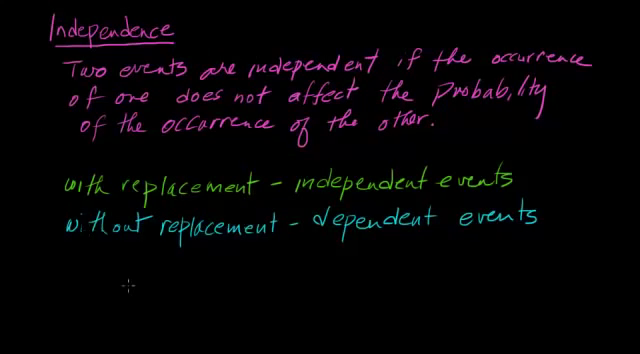 Independence
Two events are independent if the occurrence
of one does not affect the Probability
of the occurrence of the other.
with replacement - independent events
without replacement - dependent events